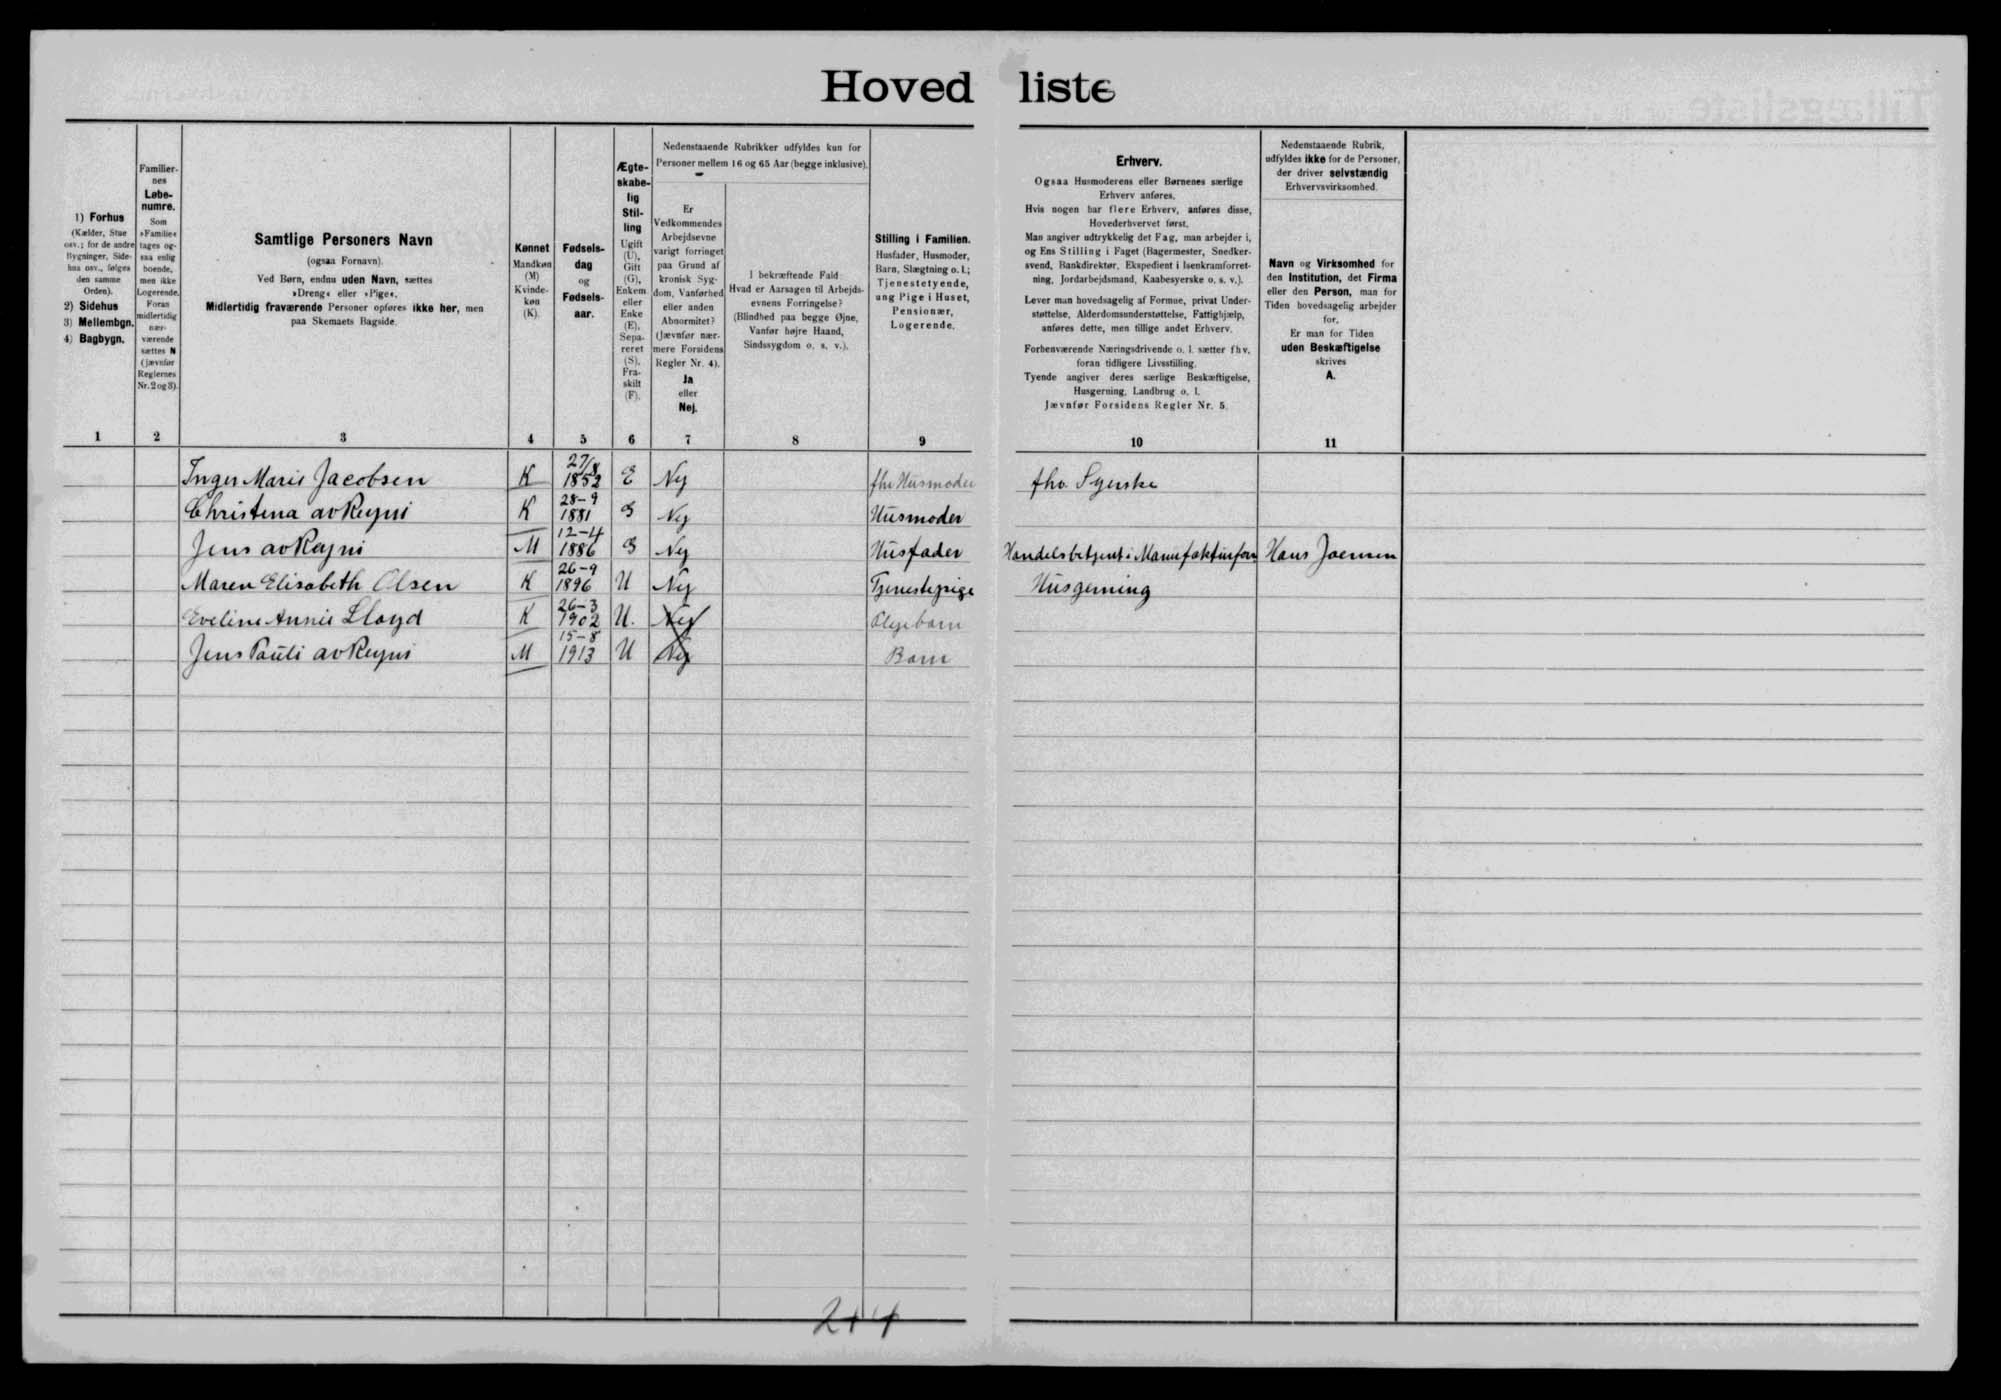 Hovedliste
1) Forhus
(Kælder, Stue
osv.; for de andre
Bygninger, Side-
hus osv., følges
den samme
Orden).
2) Sidehus
3) Mellembgn.
4) Bagbygn.
1
Familier-
nes
Løbe-
numre.
Som
»Familie«
tages og-
saa enlig
boende,
men ikke
Logerende.
Foran
midlertidig
nær-
værende
sættes N
(jævnfør
Reglernes
Nr. 2 og 3).
2
Samtlige Personers Navn
(ogsaa Fornavn).
Ved Børn, endnu uden Navn, sættes
»Dreng« eller »Pige«.
Midlertidig fraværende Personer opføres ikke her, men
paa Skemaets Bagside.
3
Kønnet
Mandkøn
(M)
Kvinde-
køn
(K).
4
Fødsels-
dag
og
Fødsels-
aar.
5
Ægte-
skabe-
lig
Stil-
ling
Ugift
(U),
Gift
(G),
Enkem.
eller
Enke
(E),
Sepa-
reret
(S),
Fra-
skilt
(F).
6
Nedenstaaende Rubrikker udfyldes kun for
Personer mellem 16 og 65 Aar (begge inklusive).
Er
Vedkommendes
Arbejdsevne
varigt forringet
paa Grund af
kronisk Syg-
dom, Vanførhed
eller anden
Abnormitet?
(Jævnfør nær-
mere Forsidens
Regler Nr. 4).
Ja
eller
Nej.
7
I bekræftende Fald:
Hvad er Aarsagen til Arbejds-
evnens Forringelse?
(Blindhed paa begge Øjne,
Vanfør højre Haand,
Sindssygdom o. s. v.).
8
Stilling i Familien.
Husfader, Husmoder,
Barn, Slægtning o. l.;
Tjenestetyende,
ung Pige i Huset,
Pensionær,
Logerende.
9
Erhverv.
Ogsaa Husmoderens eller Børnenes særlige
Erhverv anføres.
Hvis nogen har flere Erhverv, anføres disse,
Hovederhvervet først.
Man angiver udtrykkelig det Fag, man arbejder i,
og Ens Stilling i Faget (Bagermester, Snedker-
svend, Bankdirektør, Ekspedient i Isenkramforret-
ning, Jordarbejdsmand, Kaabesyerske o. s. v.).
Lever man hovedsagelig af Formue, privat Under-
støttelse, Alderdomsunderstøttelse, Fattighjælp,
anføres dette, men tillige andet Erhverv.
Forhenværende Næringsdrivende o. l. sætter fhv.
foran tidligere Livsstilling.
Tyende angiver deres særlige Beskæftigelse,
Husgerning, Landbrug o. l.
Jævnfør Forsidens Regler Nr. 5.
10
Nedenstaaende Rubrik,
udfyldes ikke for de Personer,
der driver selvstændig
Erhvervsvirksomhed.
Navn og Virksomhed for
den Institution, det Firma
eller den Person, man for
Tiden hovedsagelig arbejder
for.
Er man for Tiden
uden Beskæftigelse
skrives
A.
11
Inger Marie Jacobsen K 27/8 1852 E Nej fhv Husmoder fhv. Syerske
Christina av Reyni K 28-9 1881 G Nej Husmoder
Jens av Reyni M 12-4 1886 G Nej Husfader Handelsbetjent i Manufakturforr Hans Joensen
Maren Elisabeth Olsen K 26-9 1896 U Nej Tjenestepige Husgerning
Eveline Annie Lloyd K 26-3 1902 U. Nej Plejebarn
Jens Pauli av Reyni M 15-8 1913 U Nej Barn
2+4